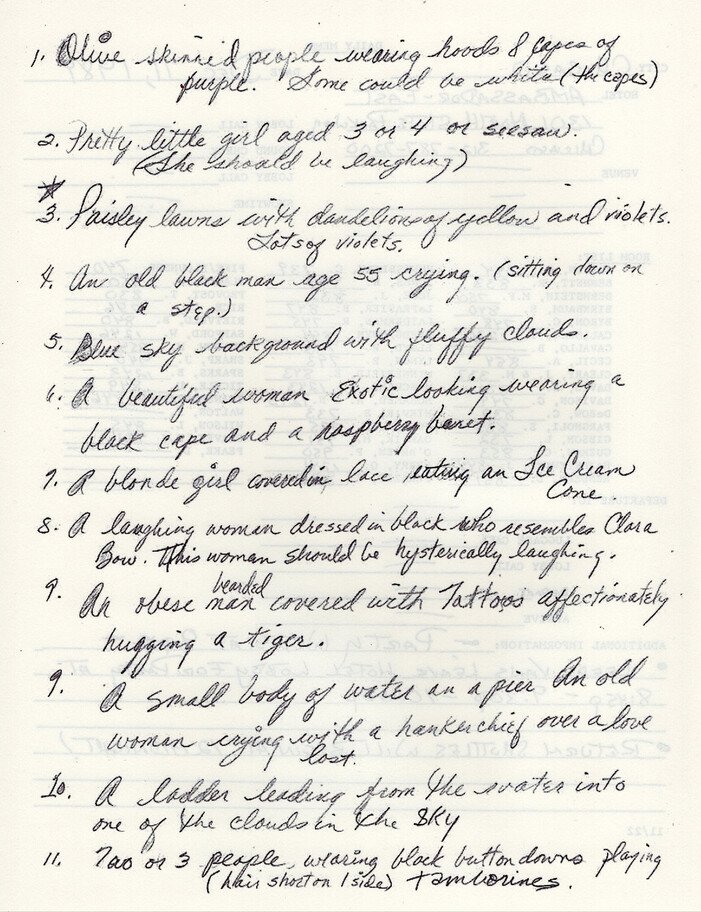 1. Olive skinned people wearing hoods & capes of
purple. Some could be white (the capes)
2. Pretty little girl aged 3 or 4 or seesaw.
(She should be laughing)
3. Paisley lawns with dandelions of yellow and violets.
Lots of violets.
4. An old black man age 55 crying. (sitting down on
a step.)
5. Blue sky background with fluffy clouds.
6. A beautiful woman Exotic looking wearing a
black cape and a raspberry baret.
7. A blonde girl covered in lace eating an Ice Cream
Cone.
8. A laughing woman dressed in black who resembles Clara
Bow. This woman should be hysterically laughing.
9. An obese bearded man covered with Tattoos affectionately
hugging a tiger.
9. A small body of water an a pier An old
woman crying with a hankerchief over a love
lost.
10. A ladder leading from the water into
one of the clouds in the Sky
11. Two or 3 people, wearing black button downs playing
(hair short on 1 side) tamborines.